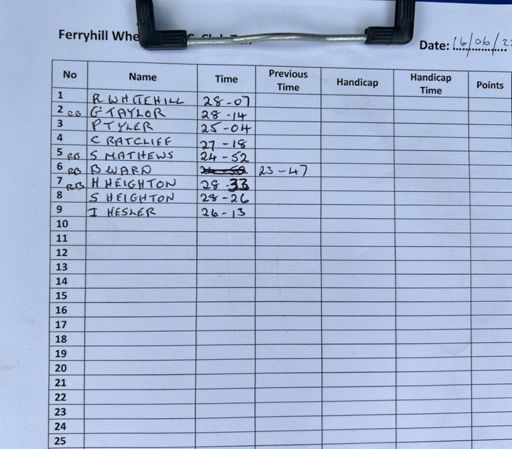 Ferryhill Whe
Date: 16/06/2
No Name Time Previous Time Handicap Handicap Time Points
1 R WHITEHILL 28-07
2 G TAYLOR 28-14
3 P TYLER 25-04
4 C RATCLIFF 27-18
5 RB S MATHEWS 24-52
6 RB B WARD 23-47
7 RB H HEIGHTON 28-33
8 S HEIGHTON 28-26
9 I HESLER 26-13
10
11
12
13
14
15
16
17
18
19
20
21
22
23
24
25